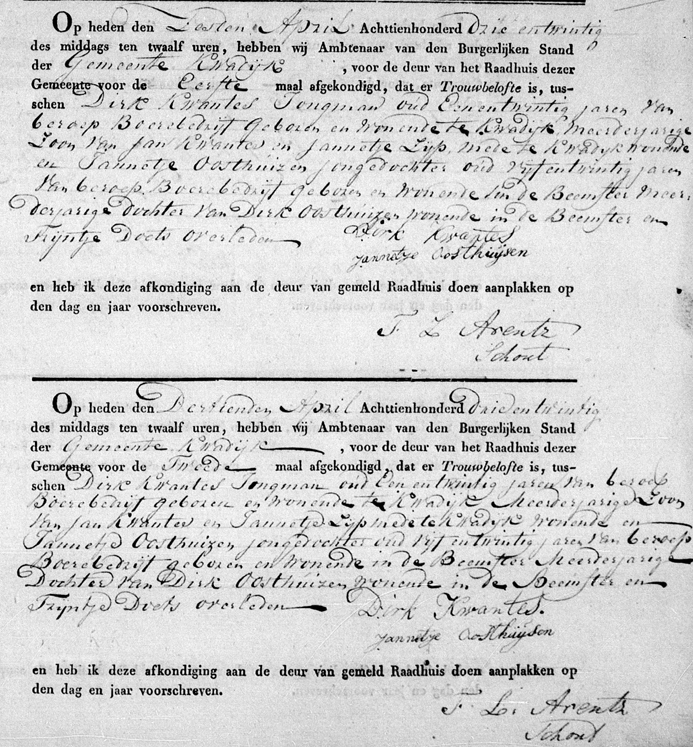 Op heden den Sesten April Achttienhonderd drie entwintig
des middags ten twaalf uren, hebben wij Ambtenaar van den Burgerlijken Stand
der Gemeente Kwadijk, voor de deur van het Raadhuis dezer
Gemeente voor de Eerste maal afgekondigd, dat er Trouwbelofte is, tus-
schen Dirk Kwantes Jongman oud Een entwintig jaren van
beroep Boerebedrijf geboren en wonende te Kwadijk, Meerderjarige
Zoon van Jan Kwantes en Jannetje Lijp, mede te Kwadijk wonende
en Jannetje Oosthuizen jongedochter oud vijf entwintig jaren
van beroep Boerebedrijf geboren en wonende in de Beemster Meer-
derjarige dochter van Dirk Oosthuizen wonende in de Beemster en
Trijntje Doets overleden
Dirk Kwantes
Jannetje Oosthuijsen
en heb ik deze afkondiging aan de deur van gemeld Raadhuis doen aanplakken op
den dag en jaar voorschreven.
T L Arentz
Schout
Op heden den Dertienden April Achttienhonderd Drie entwintig
des middags ten twaalf uren, hebben wij Ambtenaar van den Burgerlijken Stand
der Gemeente Kwadijk, voor de deur van het Raadhuis dezer
Gemeente voor de Tweede maal afgekondigd, dat er Trouwbelofte is, tus-
schen Dirk Kwantes Jongman oud Een entwintig jaren van beroep
Boerebedrijf geboren en wonende te Kwadijk Meerderjarige Zoon
van Jan Kwantes en Jannetje Lijp mede te Kwadijk wonende en
Jannetje Oosthuizen jongedochter oud vijf entwintig jaren van beroep
Boerebedrijf geboren en wonende in de Beemster Meerderjarige
Dochter van Dirk Oosthuizen wonende in de Beemster en
Trijntje Doets overleden
Dirk Kwantes.
Jannetje Oosthuijsen
en heb ik deze afkondiging aan de deur van gemeld Raadhuis doen aanplakken op
den dag en jaar voorschreven.
T L. Arentz
Schout